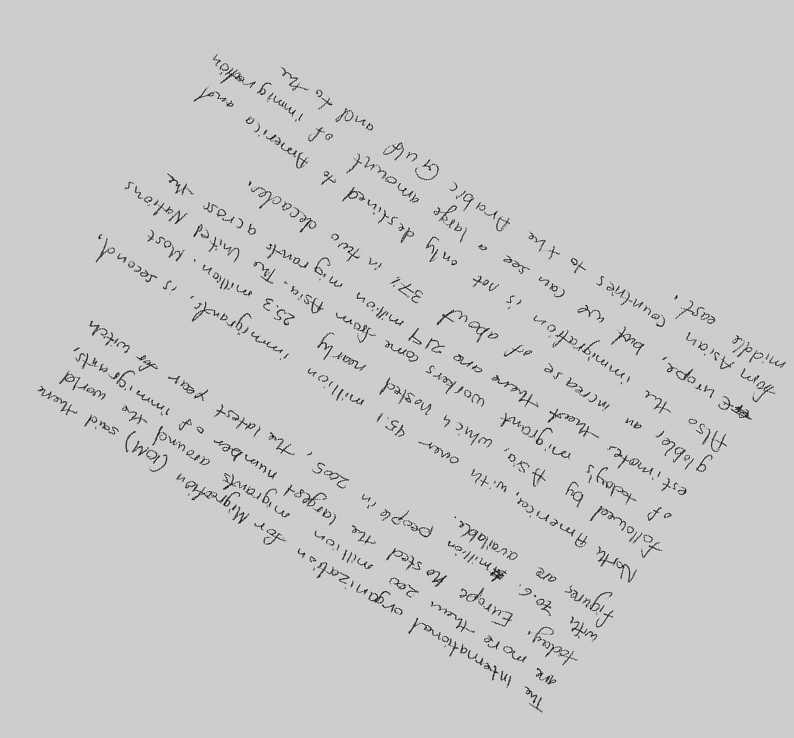 The International organization for Migration (IOM) said there
are more then 200 million migrants around the world
today. Europe hosted the largest number of immigrants,
with 70.6 million people in 2005, the latest year for witch
figures are available.
North America, with over 45.1 million immigrants, is second,
followed by Asia, which hosted nearly 25.3 million. Most
of today's migrant workers come from Asia. The United Nations
estimates that there are 214 million migrants across the
globle, an increase of about 37% in two decades.
Also the immigration is not only destined to America and
Europe, but we can see a large amount of immigration
from Asian countries to the Arabic Gulf and to the
middle east.